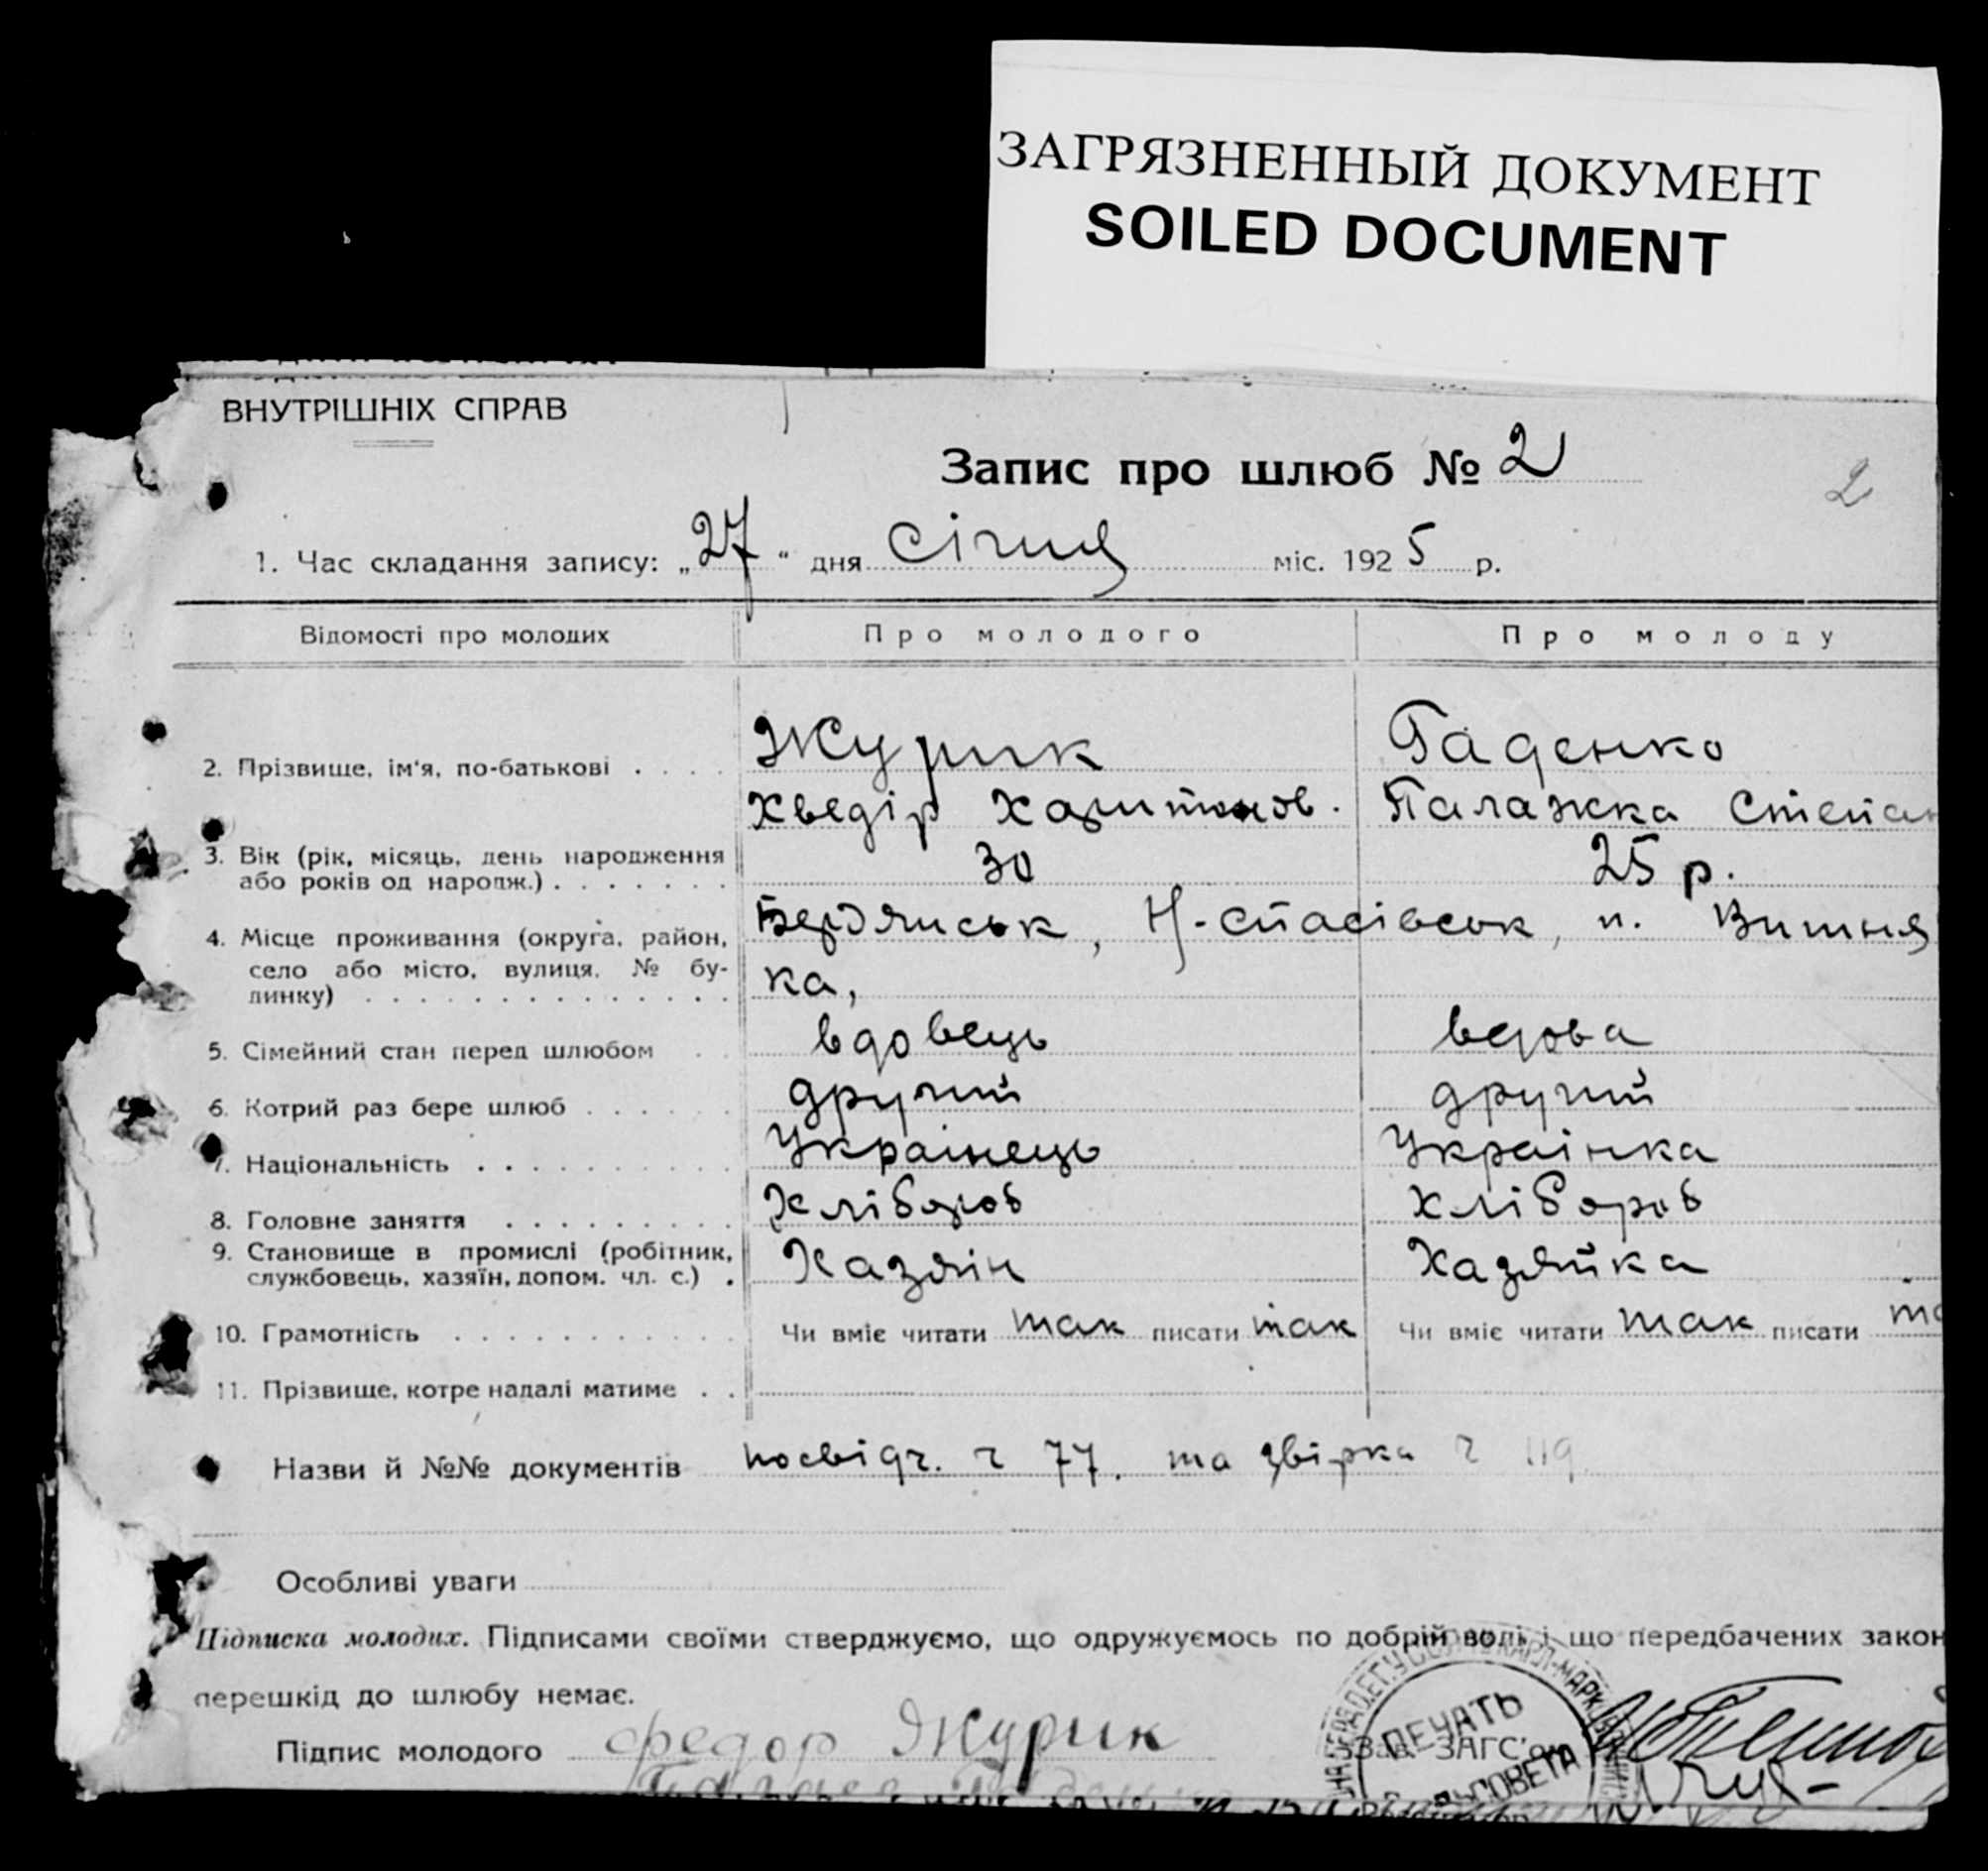 ЗАГРЯЗНЕННЫЙ ДОКУМЕНТ
SOILED DOCUMENT
ВНУТРІШНІХ СПРАВ
Запис про шлюб № 2
2
1. Час складання запису: „27“ дня Січня міс. 1925 р.
Відомості про молодих Про молодого Про молоду
2. Прізвище, ім'я, по-батькові . . . . Журик Гаденко
Хведір Харитонов. Палажка Степан
3. Вік (рік, місяць, день народження 30 25 р.
або років од народж.) . . . . . . .
4. Місце проживання (округа, район, Бердянськ, Н-спасівськ, п. Вишня
село або місто, вулиця, № бу- ка,
динку) . . . . . . . . . . . . . .
5. Сімейний стан перед шлюбом . . вдовець вдова
6. Котрий раз бере шлюб . . . . . . другий другий
7. Національність . . . . . . . . . . Українець Українка
8. Головне заняття . . . . . . . . . Хлібороб Хлібороб
9. Становище в промислі (робітник, Хазяін Хазяйка
службовець, хазяїн, допом. чл. с.) .
10. Грамотність . . . . . . . . . . . Чи вміє читати так писати так Чи вміє читати так писати та
11. Прізвище, котре надалі матиме . .
Назви й №№ документів посвідч. ч 77. та звірка ч 119
Особливі уваги
Підписка молодих. Підписами своїми стверджуємо, що одружуємось по добрій волі і що передбачених закон
перешкід до шлюбу немає.
Підпис молодого Федор Журик Зав. ЗАГС'ом
ПЕЧАТЬ